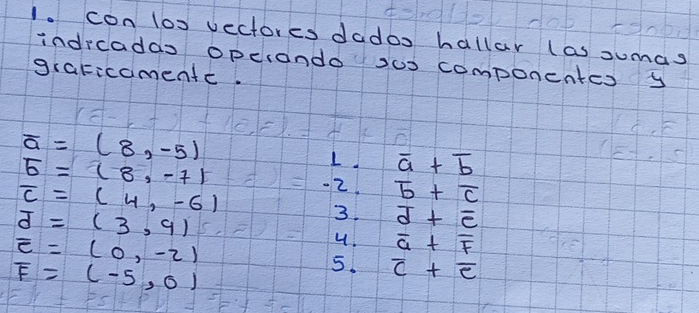 1. con los vectores dados hallar las sumas
indicadas operando sus componentes y
graficamente.
a̅ = (8, -5)
b̅ = (8, -7)
c̅ = (4, -6)
d̅ = (3, 9)
e̅ = (0, -2)
F̅ = (-5, 0)
1. a̅ + b̅
2. b̅ + c̅
3. d̅ + e̅
4. a̅ + F̅
5. c̅ + e̅